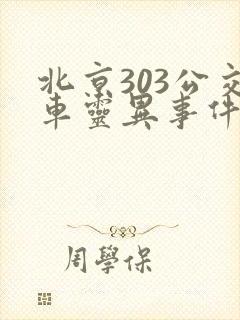 北京303公交
車靈異事件
周學保